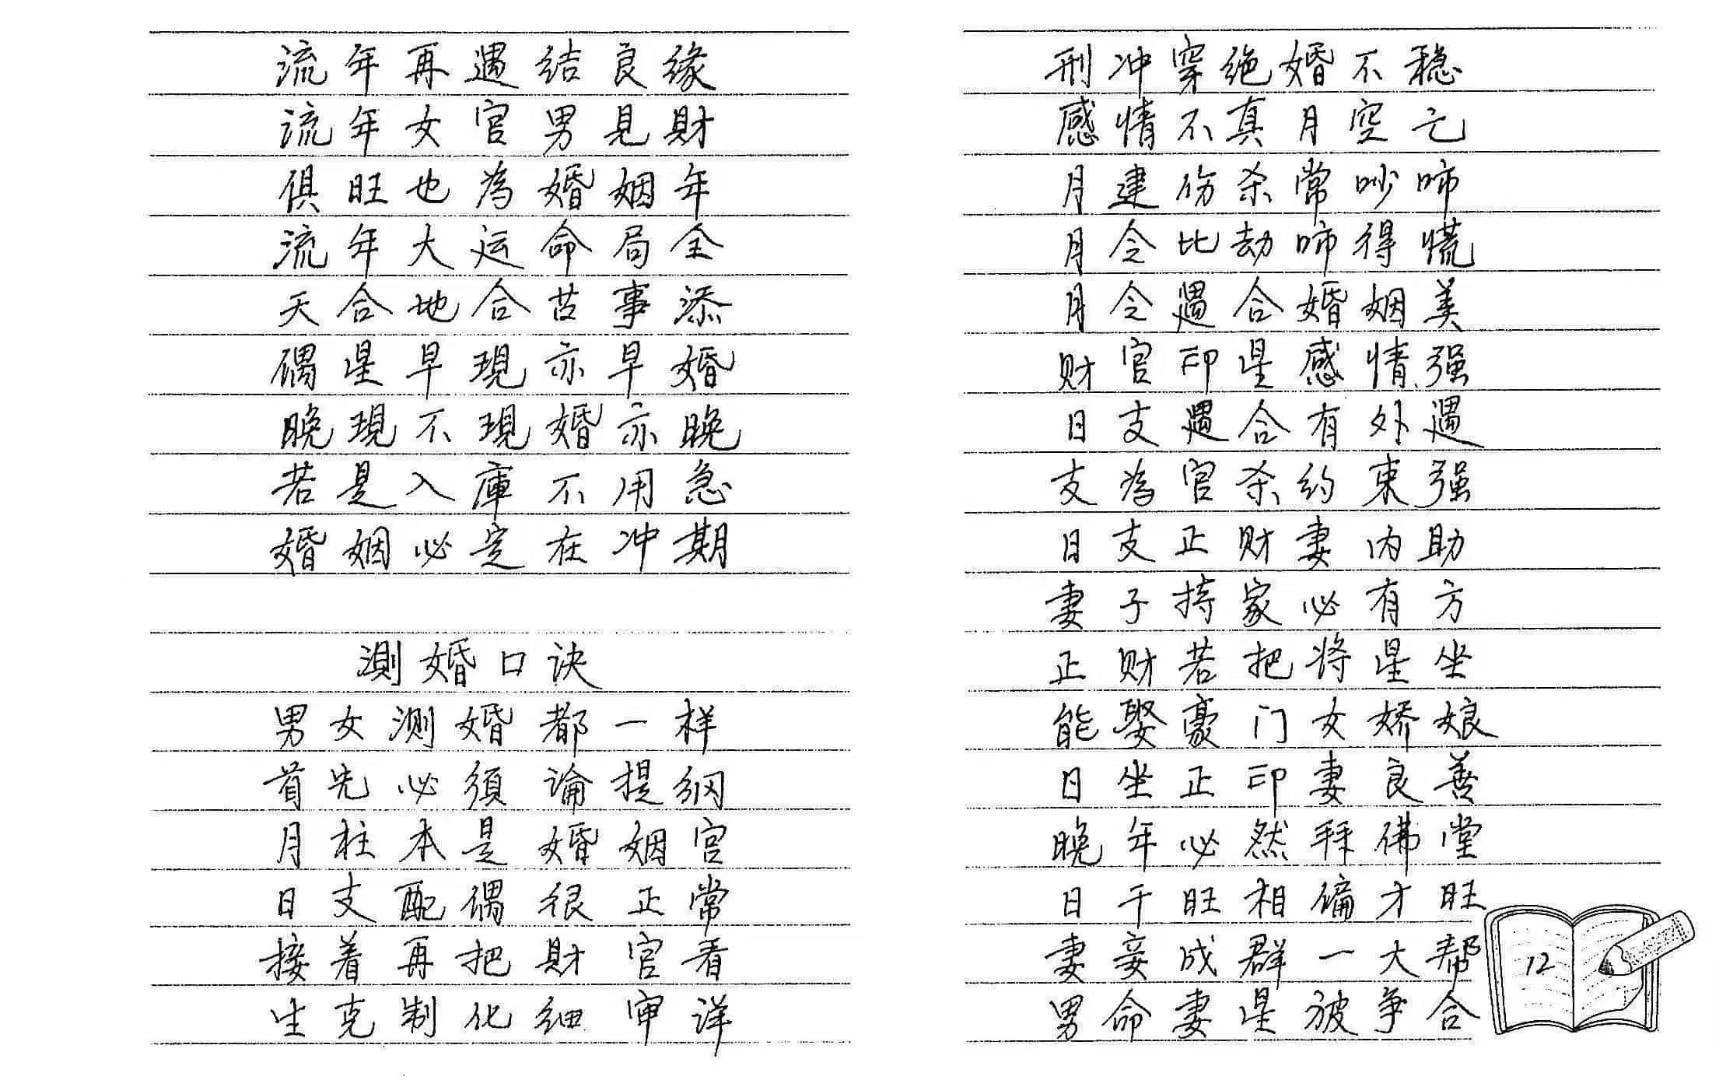 流年再遇结良缘
流年女官男見財
俱旺也為婚姻年
流年大运命局全
天合地合苦事添
偶星早現亦早婚
晚現不現婚亦晚
若是入庫不用急
婚姻必定在冲期
測婚口诀
男女測婚都一样
首先必須論提纲
月柱本是婚姻宫
日支配偶很正常
接着再把財官看
生克制化细审详
刑冲穿绝婚不稳
感情不真月空亡
月建伤杀常吵啼
月令比劫啼得慌
月令遇合婚姻美
财官印星感情强
日支遇合有外遇
支為官杀约束强
日支正财妻内助
妻子持家必有方
正财若把将星坐
能娶豪门女娇娘
日坐正印妻良善
晚年必然拜佛堂
日干旺相偏才旺
妻妾成群一大帮
男命妻星被争合
12